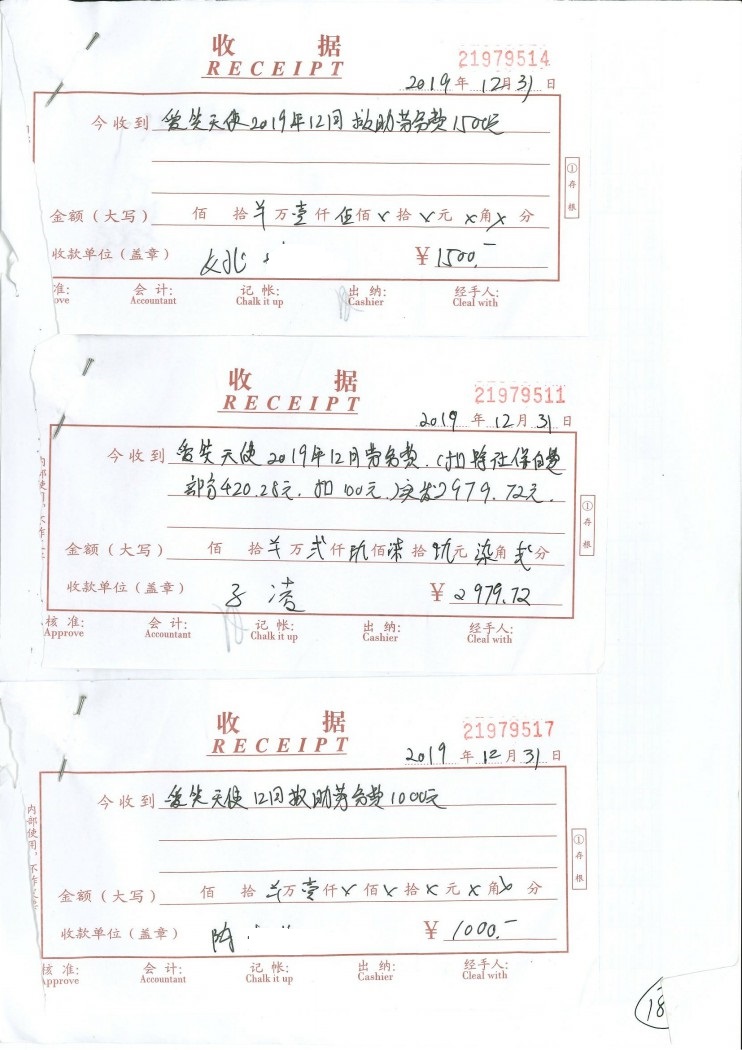 收 据
RECEIPT
21979514
2019年12月31日
今收到 爱笑天使2019年12月救助劳务费1500元
①存根
金额（大写） 佰 拾 万壹仟伍佰x拾x元x角x分
收款单位（盖章）
¥1500.-
准: 会 计: 记 帐: 出 纳: 经手人:
ove Accountant Chalk it up Cashier Cleal with
收 据
RECEIPT
21979511
2019年12月31日
内部使用,不作
今收到 爱笑天使2019年12月劳务费.(扣除社保自费
部分420.28元.扣100元.)实发2979.72元.
①存根
金额（大写） 佰 拾 万贰仟玖佰柒拾玖元柒角贰分
收款单位（盖章） 子凌
¥2979.72
核 准: 会 计: 记 帐: 出 纳: 经手人:
Approve Accountant Chalk it up Cashier Cleal with
收 据
RECEIPT
21979517
2019年12月31日
内部使用,不作
今收到 爱笑天使12月救助劳务费1000元
①存根
金额（大写） 佰 拾 万壹仟x佰x拾x元x角x分
收款单位（盖章） 陶
¥1000.-
核 准: 会 计: 记 帐: 出 纳: 经手人:
Approve Accountant Chalk it up Cashier Cleal with
18